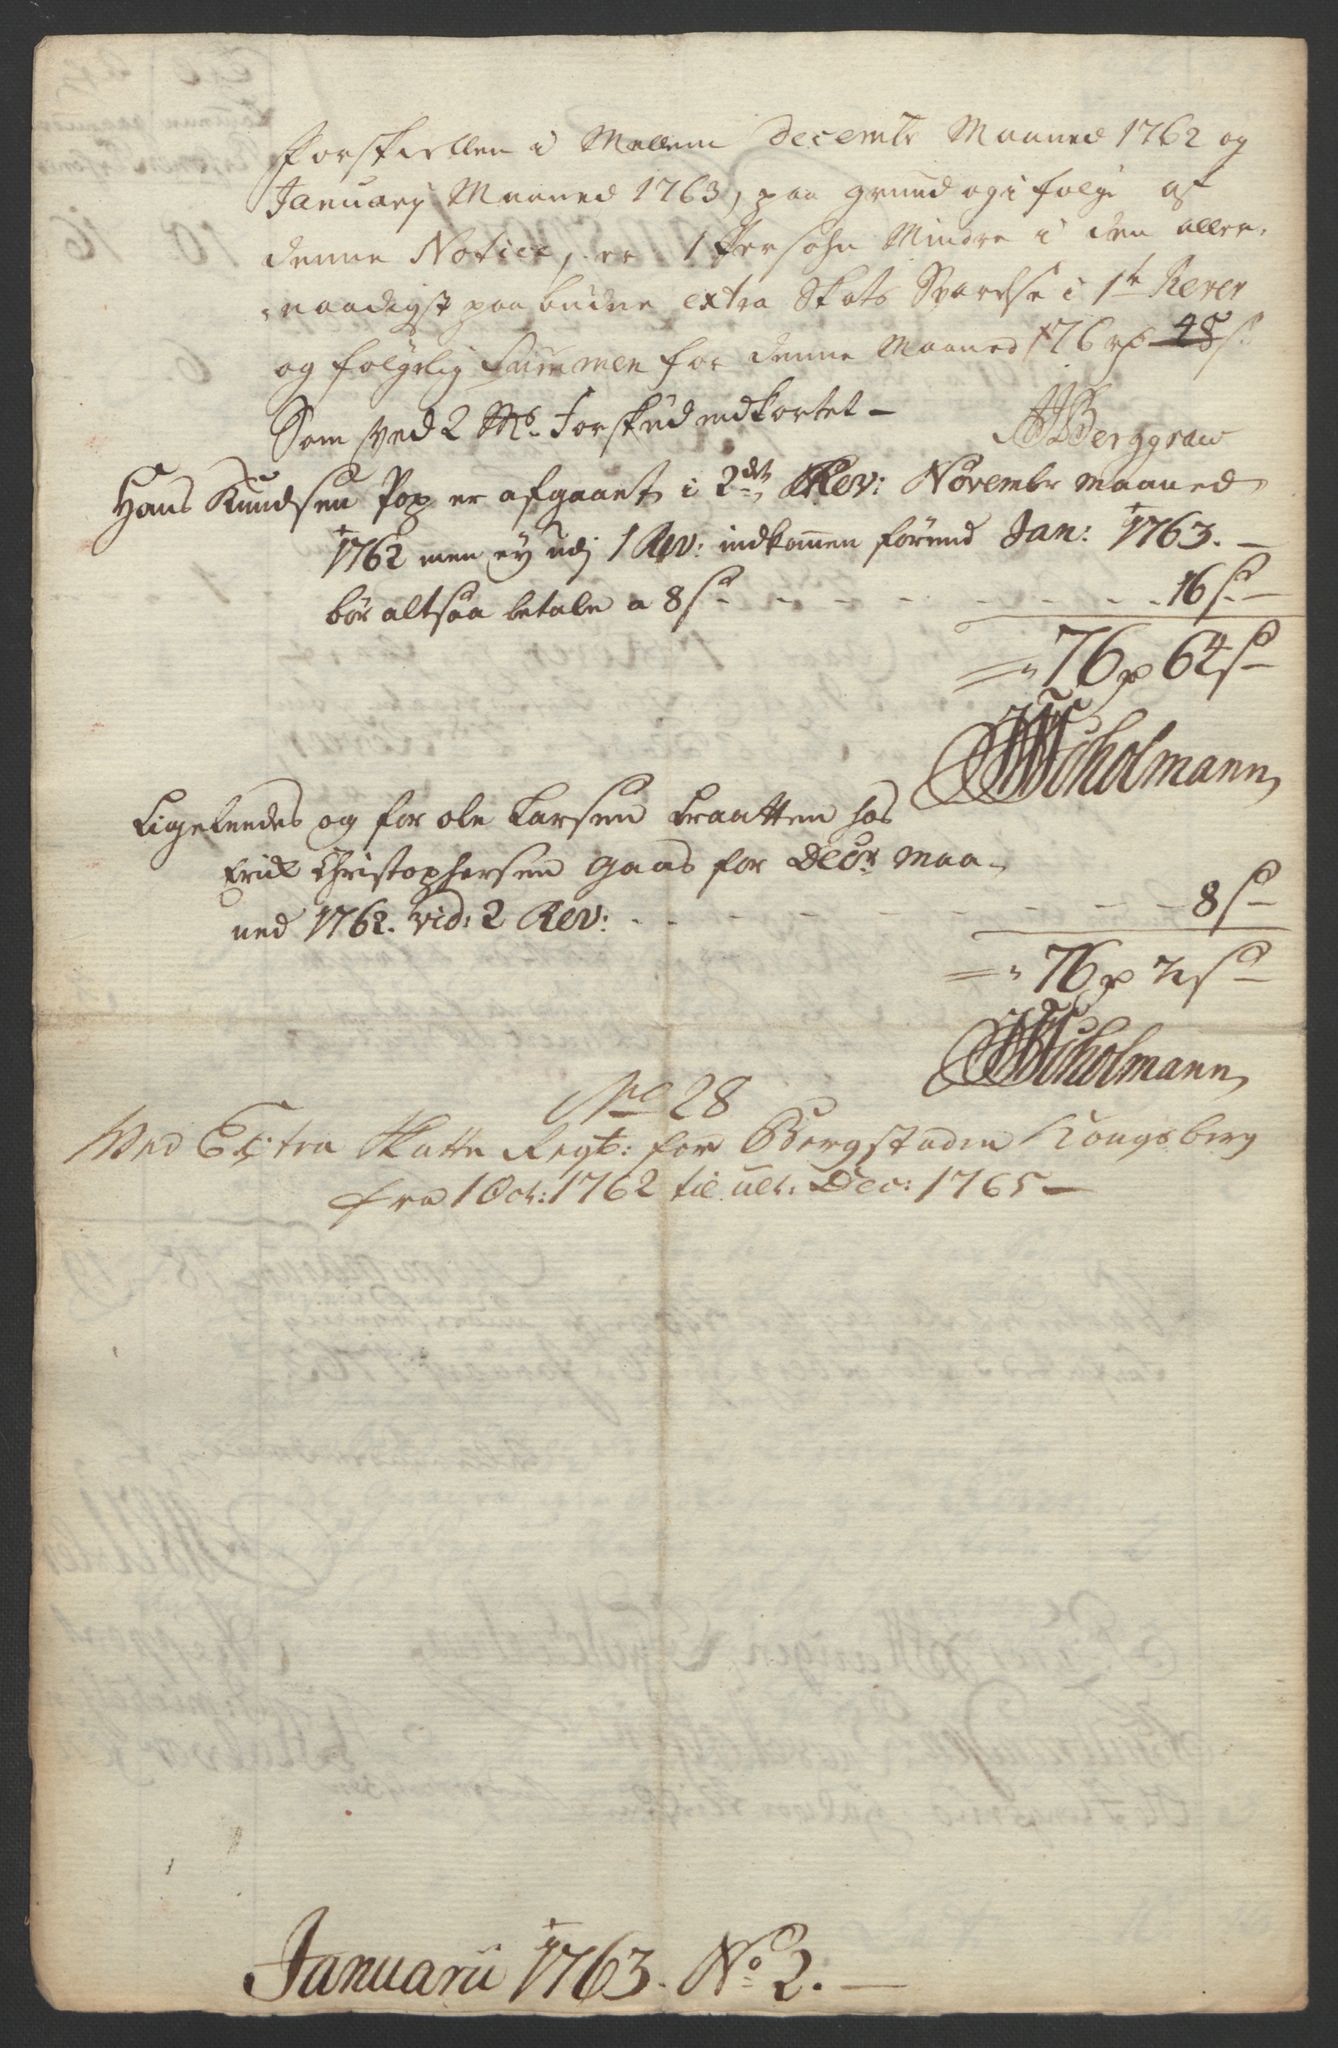 Forskiellen i Mellem Decembr Maaned 1762 og
Januarij Maaned 1763, paa grund og i følge af
denne Notice, er 1 Persohn Mindre i den aller-
naadigst paabudne extra Skats Svarelse i 1te Rever
og følgelig Summen for denne Maaned 176 rd 48 s
Som ved 2 Forskud indkortet -
Berggraw
Hans Knudsen Pop er afgaaet i 2det Rev: Novembr maaned
1762 men ey udj 1 Rev: indkommen førend Jan: 1763. -
bør altsaa betale a 8 s - - - - - - - 16 s -
76 64 s -
Scholmann
Ligeleedes og for ole Larsen Braatten hos
Erik Christophersen Gaas for Decbr maa-
ned 1762. vid: 2 Rev: - - - - - - - 8 s -
76 72 s -
Scholmann
No 28
Ved Extra Skatte Regsk: for Bergstaden Kongsberg
fra 1 Oct: 1762 til ult: Dec: 1765 -
Januarii 1763. No 2. -